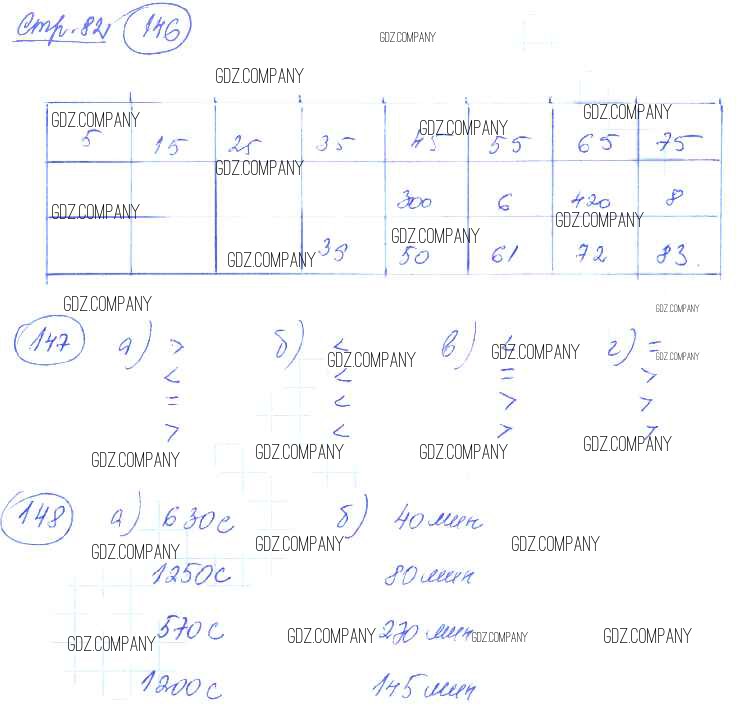 Стр. 82 146
GDZ.COMPANY
GDZ.COMPANY
GDZ.COMPANY GDZ.COMPANY GDZ.COMPANY
5 15 25 35 45 55 65 75
GDZ.COMPANY
300 6 420 8
GDZ.COMPANY GDZ.COMPANY
GDZ.COMPANY GDZ.COMPANY
39 50 61 72 83.
GDZ.COMPANY GDZ.COMPANY
147 а) > б) < в) < г) =
GDZ.COMPANY GDZ.COMPANY GDZ.COMPANY
< < = >
= < > >
> < > >
GDZ.COMPANY GDZ.COMPANY GDZ.COMPANY GDZ.COMPANY
148 а) 630с б) 40 мин
GDZ.COMPANY GDZ.COMPANY GDZ.COMPANY
1250с 80 мин
570с 230 мин
GDZ.COMPANY GDZ.COMPANY GDZ.COMPANY GDZ.COMPANY
1200с 145 мин